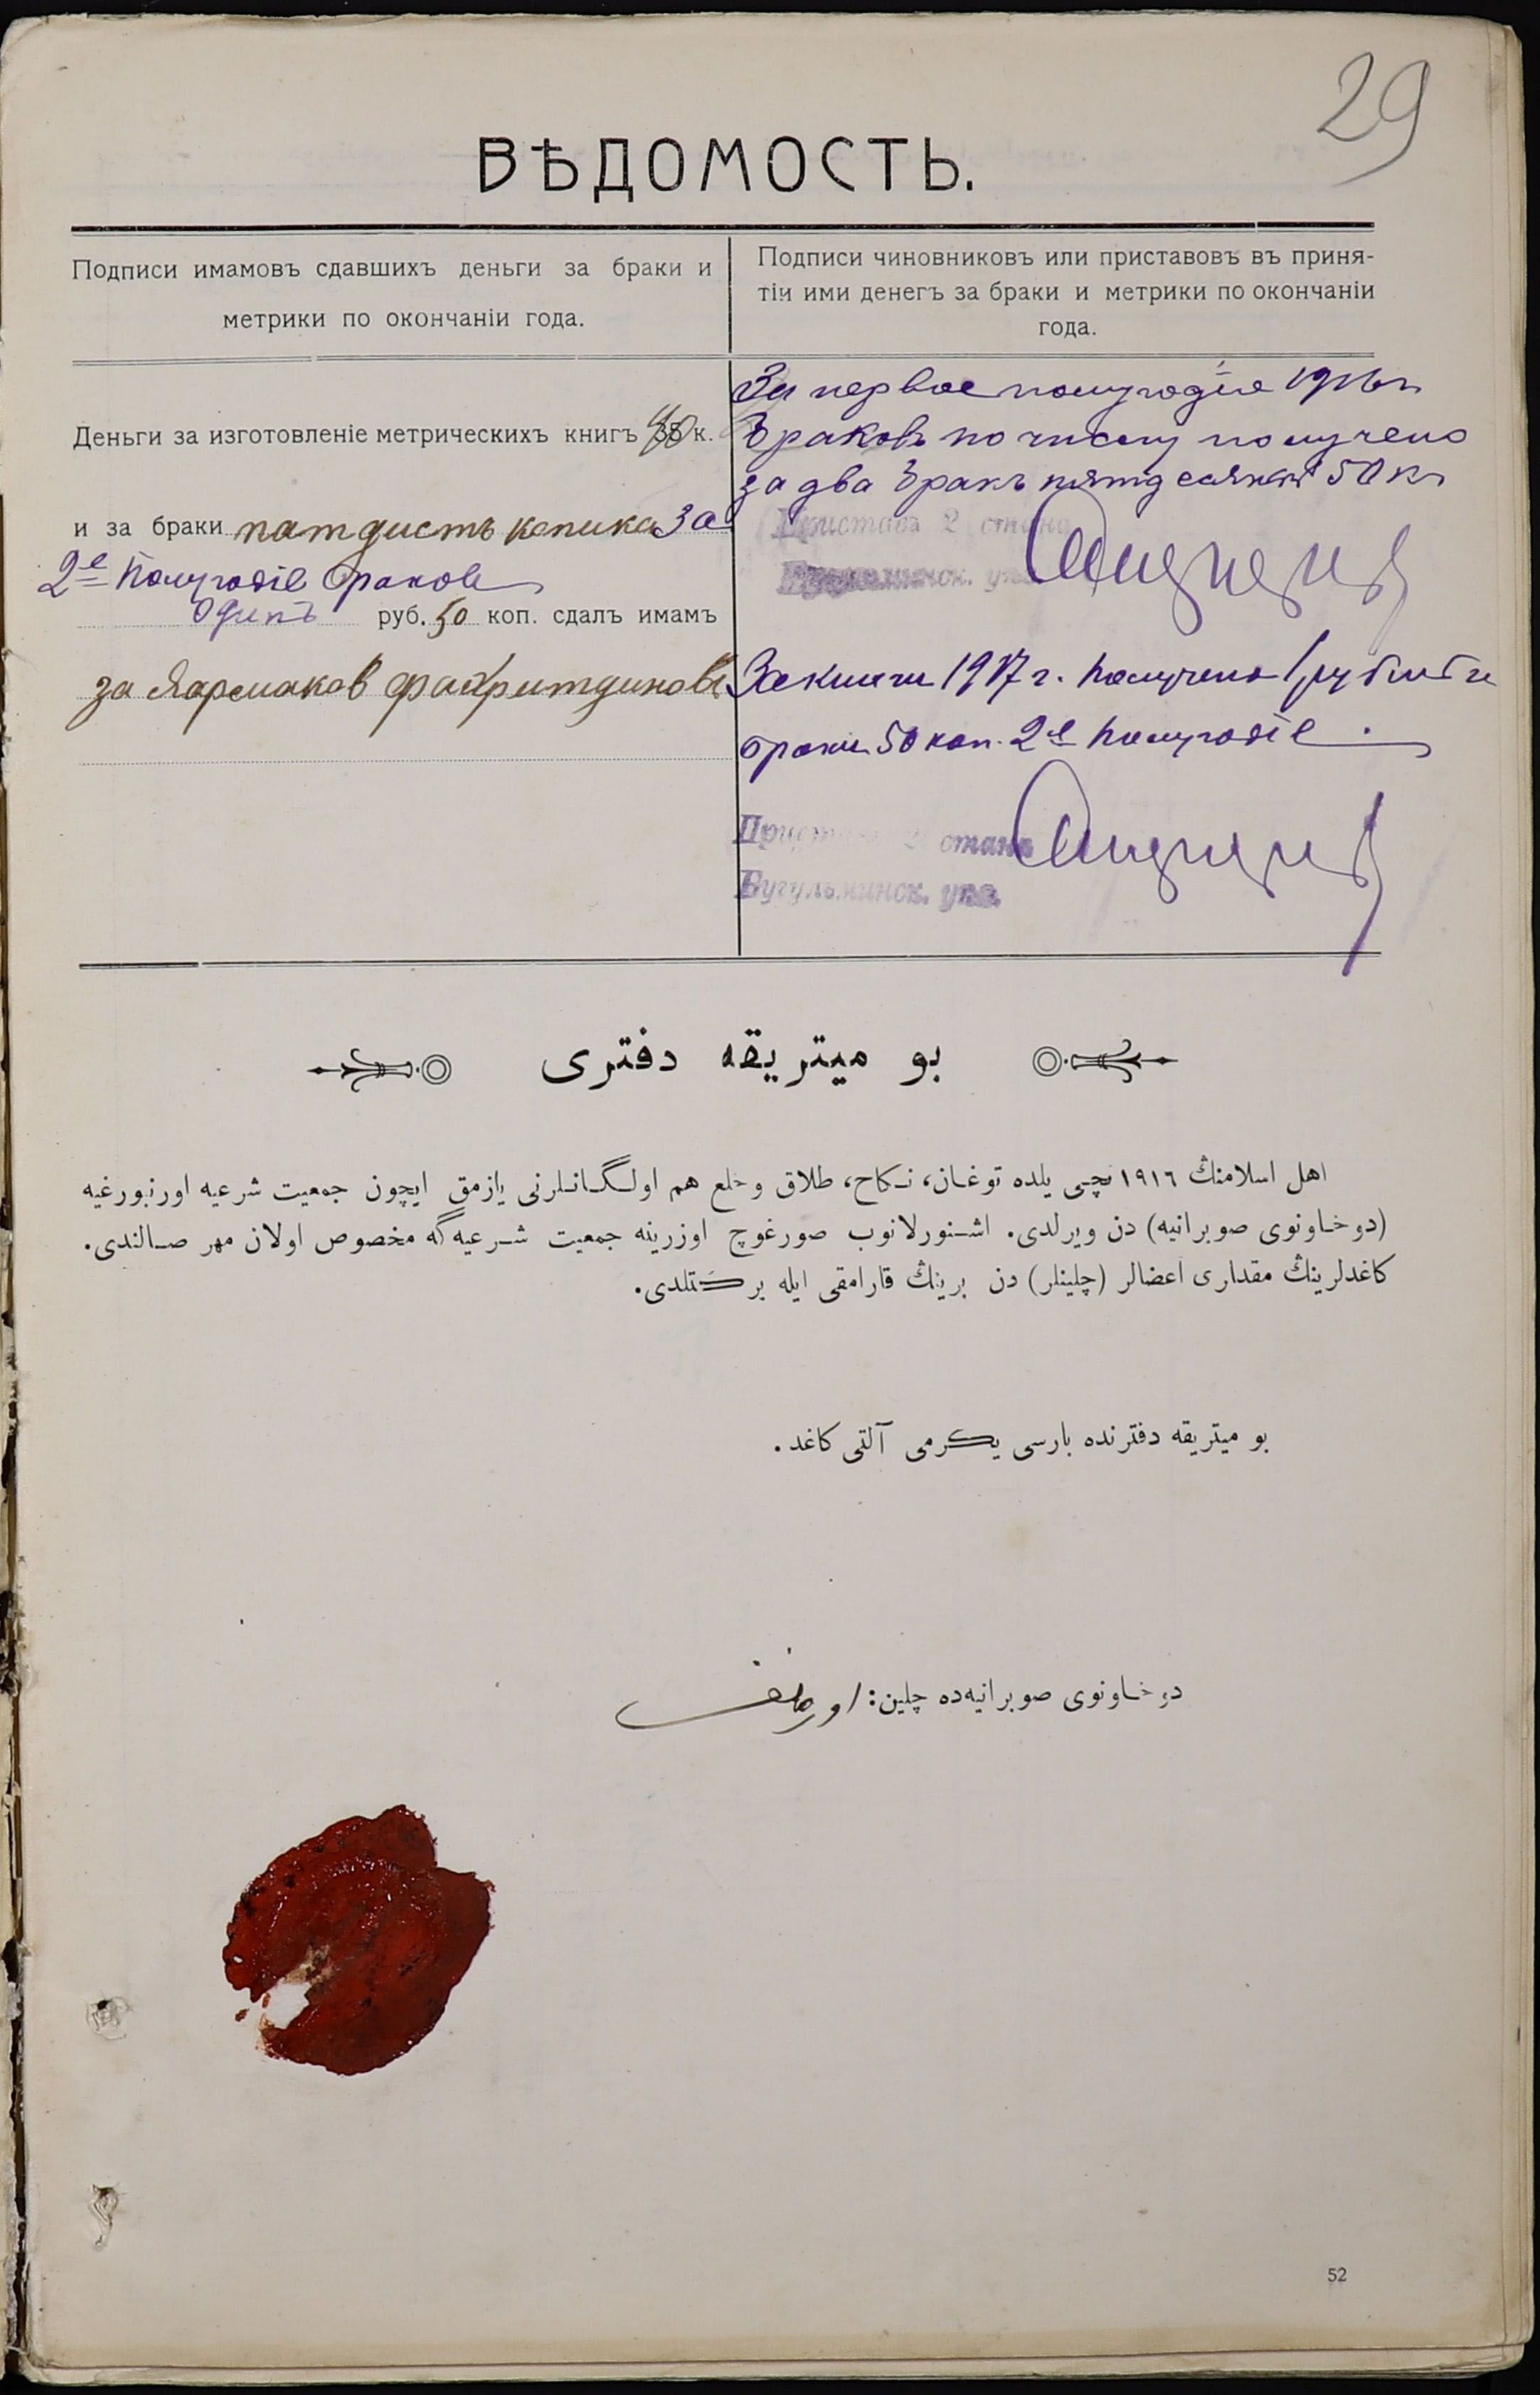 29
ВѢДОМОСТЬ.
Подписи имамовъ сдавшихъ деньги за браки и
метрики по окончаніи года.
Подписи чиновниковъ или приставовъ въ приня-
тіи ими денегъ за браки и метрики по окончаніи
года.
Деньги за изготовленіе метрическихъ книгъ к.
и за браки патдистъ копика за
2е Полугодіе браков
одинъ руб. 50 коп. сдалъ имамъ
за Яармаков фахритдиновъ
За первое полугодіе 1916 г
браковъ по числу получено
за два бракъ пятдесянт 50 к
Пристава 2 стана
За книги 1917 г. Получено 1 рубль
браки 50 коп. 2е Полугодіе
Пристава 2 стана
Бугульминск. уѣз.
بو ميتريقه دفتری
اهل اسلامنڭ ١٩١٦ نچی يلده توغان، نكاح، طلاق وخلع هم اولگانلرنی يازمق ايچون جمعيت شرعيه اورنبورغيه
(دوخاونوی صوبرانيه) دن ويرلدی. اشنورلانوب صورغوچ اوزرينه جمعيت شرعيه گه مخصوص اولان مهر صالندی.
كاغدلرينڭ مقداری اعضالر (چلينلر) دن برينڭ قارامقی ايله بركتلدی.
بو ميتريقه دفترنده بارسی يكرمی آلتی كاغد.
دوخاونوی صوبرانيه‌ده چلين:
52